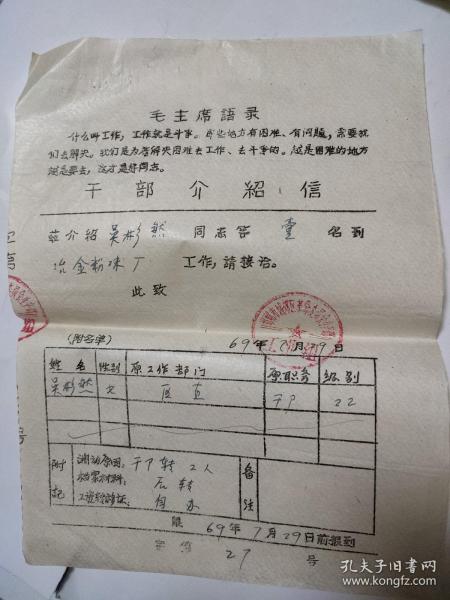 毛主席語录
什么叫工作，工作就是斗争。那些地方有困难、有问题，需要我
们去解决。我们是为着解决困难去工作、去斗争的。越是困难的地方
越是要去，这才是好同志。
干部介紹信
茲介紹 吴彬然 同志等 壹 名到
冶金粉沫厂 工作，請接洽。
此致
69年7月29日
(附名单)
姓名 性别 原工作部门 原职务 级别
吴彬然 女 区直 干卩 22
附記 調动原因：干卩转工人 备注
档案材料：后转
工资给譜証：自办
限 69年7月29日前报到
字第 27 号
孔夫子旧书网
www.kongfz.com